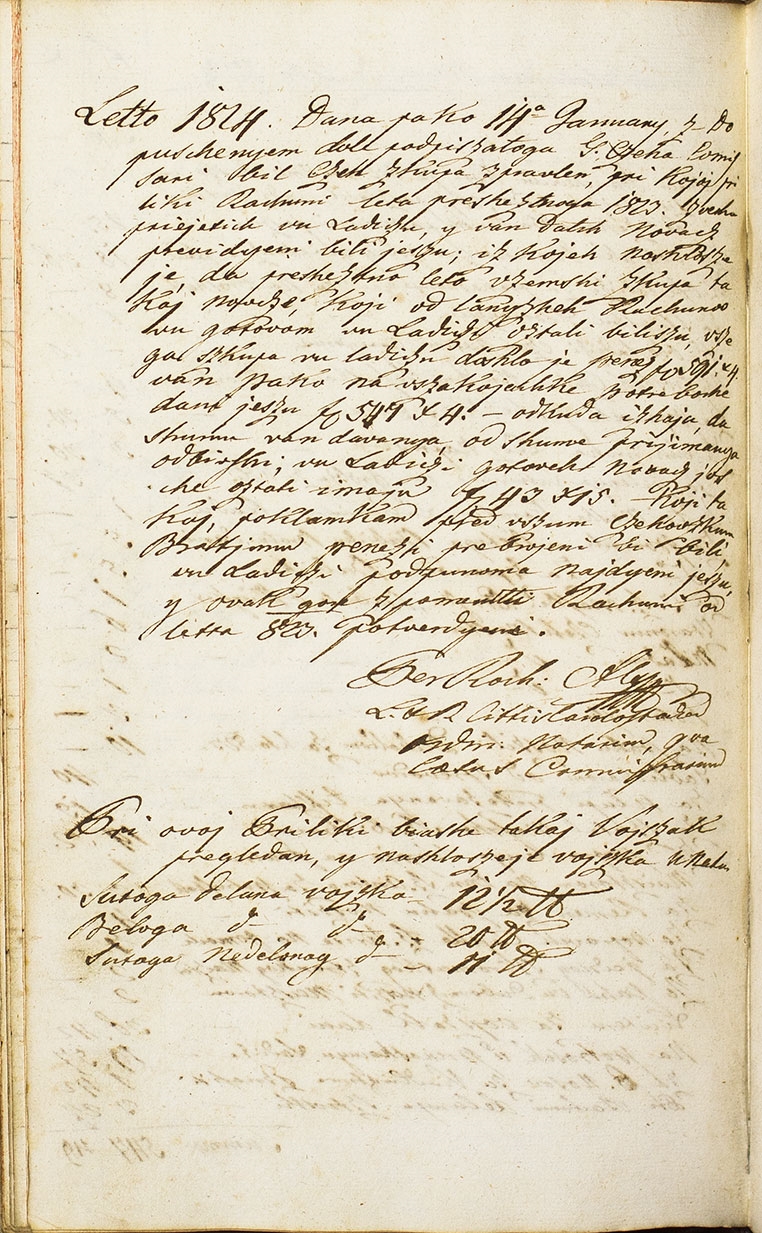 Letto 1824. Dana pako 14a January, z Do
puschenyem dole podpiszatoga G. Czeha Comis
sari bil Czeh zkupa zpravlen, pri kojoj pri
liki Rachuni leta preshesztnoga 1823. zverhu
priejetih vu Ladiczu, y van Dateh Novacz
previdyeni bili jeszu; iz kojeh nashloshe
je, da preshesztno leto vzemshi zkupa ta
kaj novcze, koji od lanyzkeh Rachunov
vu gotovom vu Ladiczi oztali biliszu, vsze
ga zkupa vu ladiczu doshlo je penez f 591 x 4.
van pako na vszakojachke potreboche
dani jeszu f 547 x 4. — odkuda izhaja da
shumu van davanya, od shume prijimanya
odbivshi; vu Ladiczi gotoveh Novacz jos
che oztali imaju f 43 x 15. — Koji ta
kaj, poklamkam pred vszum Czehovzkum
Bratjumu penezi prebrojeni bi bili
vu Ladiczi podpunoma najdyeni jeszu,
y ovak gore zpomenutti Rachuni od
letta 823. potverdyeni.
L. & R. Cittis
ordin. Notarium, qva
Commissarium
Pri ovoj Priliki biashe takaj Vojszak
pregledan, y nashloszeje vojszka
Sutoga delana vojszka 12 1/2 lb
Beloga d— d— — 20 lb.
Sutoga Nedelanog d— — 11 lb